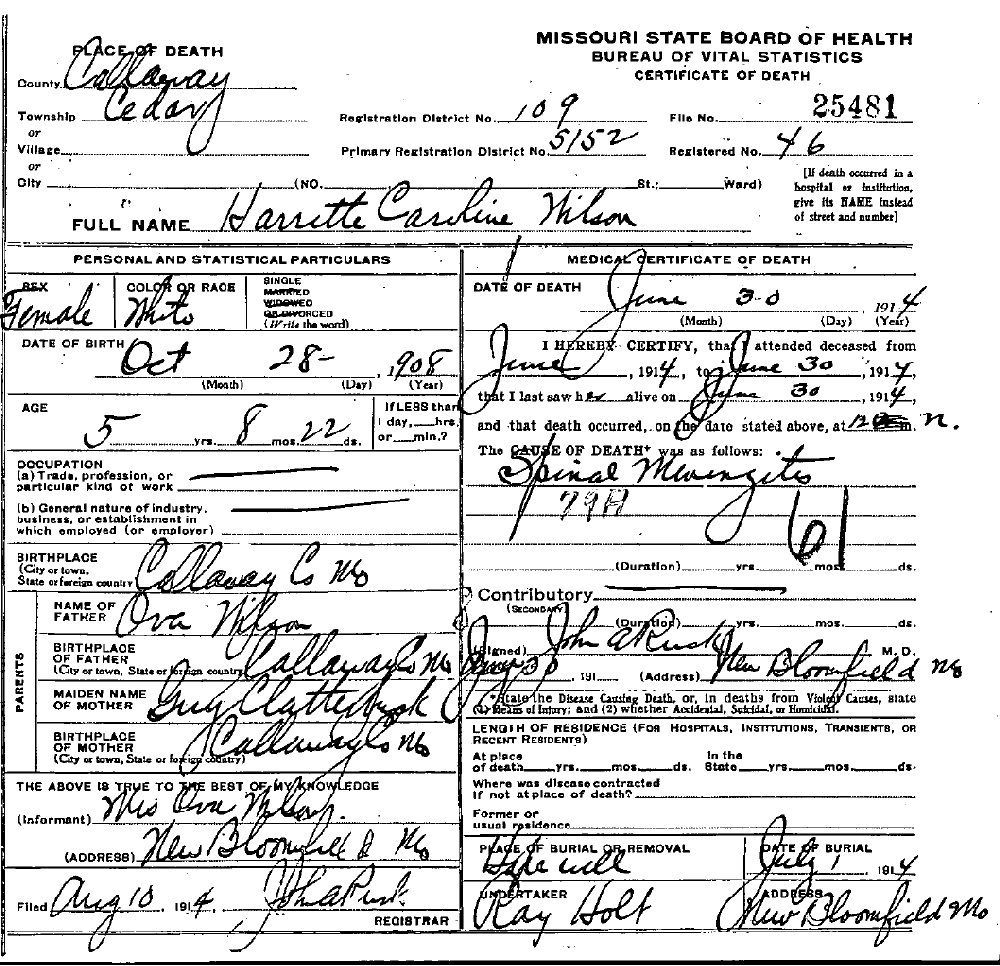 MISSOURI STATE BOARD OF HEALTH
BUREAU OF VITAL STATISTICS
CERTIFICATE OF DEATH
PLACE OF DEATH
County Callaway
Township Cedar
or
Village
or
City (NO. St.; Ward)
Registration District No. 109
File No. 25481
Primary Registration District No. 5152
Registered No. 46
[If death occurred in a
hospital or institution,
give its NAME instead
of street and number]
FULL NAME Harrette Caroline Wilson
PERSONAL AND STATISTICAL PARTICULARS
SEX
Female
COLOR OR RACE
White
SINGLE
MARRIED
WIDOWED
OR DIVORCED
(Write the word)
DATE OF BIRTH
Oct 28- , 1908
(Month) (Day) (Year)
AGE
5 yrs. 8 mos. 22 ds.
If LESS than
1 day, hrs.
or min.?
OCCUPATION
(a) Trade, profession, or
particular kind of work
(b) General nature of industry,
business, or establishment in
which employed (or employer)
BIRTHPLACE
(City or town,
State or foreign country) Callaway Co Mo
PARENTS
NAME OF
FATHER Ova Wilson
BIRTHPLACE
OF FATHER
(City or town, State or foreign country) Callaway Co Mo
MAIDEN NAME
OF MOTHER Clatterbuck
BIRTHPLACE
OF MOTHER
(City or town, State or foreign country) Callaway Co Mo
THE ABOVE IS TRUE TO THE BEST OF MY KNOWLEDGE
(Informant) Mrs Ova Wilson
(ADDRESS) New Bloomfield Mo
Filed Aug 10 , 1914, John A Rusk
REGISTRAR
MEDICAL CERTIFICATE OF DEATH
DATE OF DEATH
June 30 1914
(Month) (Day) (Year)
I HEREBY CERTIFY, that I attended deceased from
June , 1914, to June 30 , 1914,
that I last saw her alive on June 30 , 1914,
and that death occurred, on the date stated above, at 12 m. n.
The CAUSE OF DEATH* was as follows:
Spinal Meningites
79A
61
(Duration) yrs. mos. ds.
Contributory
(SECONDARY)
(Duration) yrs. mos. ds.
(Signed) John A Rusk M. D.
30 , 191 (Address) New Bloomfield Mo
*State the Disease Causing Death, or, in deaths from Violent Causes, state
(1) Means of Injury; and (2) whether Accidental, Suicidal, or Homicidal.
LENGTH OF RESIDENCE (FOR HOSPITALS, INSTITUTIONS, TRANSIENTS, OR
RECENT RESIDENTS)
At place In the
of death yrs. mos. ds. State yrs. mos. ds.
Where was disease contracted
if not at place of death?
Former or
usual residence
PLACE OF BURIAL OR REMOVAL
Hopewell
DATE OF BURIAL
July 1 , 1914
UNDERTAKER
Ray Holt
ADDRESS
New Bloomfield Mo